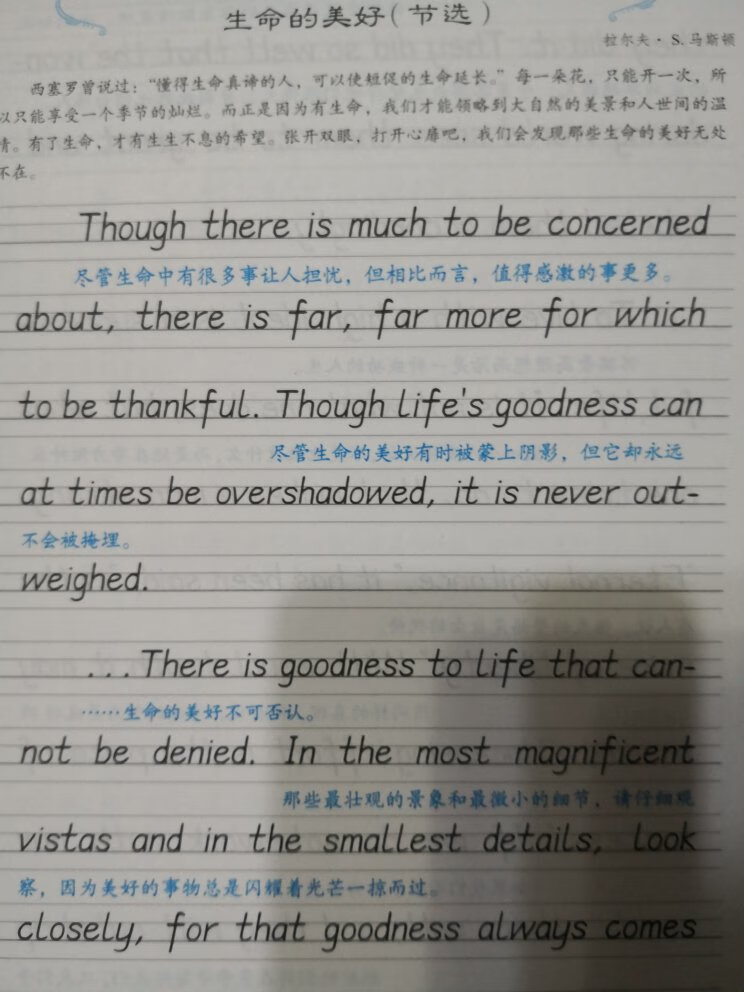 生命的美好(节选)
拉尔夫·S.马斯顿
西塞罗曾说过：“懂得生命真谛的人，可以使短促的生命延长。”每一朵花，只能开一次，所
以只能享受一个季节的灿烂。而正是因为有生命，我们才能领略到大自然的美景和人世间的温
情。有了生命，才有生生不息的希望。张开双眼，打开心扉吧，我们会发现那些生命的美好无处
不在。
Though there is much to be concerned
尽管生命中有很多事让人担忧，但相比而言，值得感激的事更多。
about, there is far, far more for which
to be thankful. Though life's goodness can
尽管生命的美好有时被蒙上阴影，但它却永远
at times be overshadowed, it is never out-
不会被掩埋。
weighed.
...There is goodness to life that can-
……生命的美好不可否认。
not be denied. In the most magnificent
那些最壮观的景象和最微小的细节，请仔细观
vistas and in the smallest details, look
察，因为美好的事物总是闪耀着光芒一掠而过。
closely, for that goodness always comes